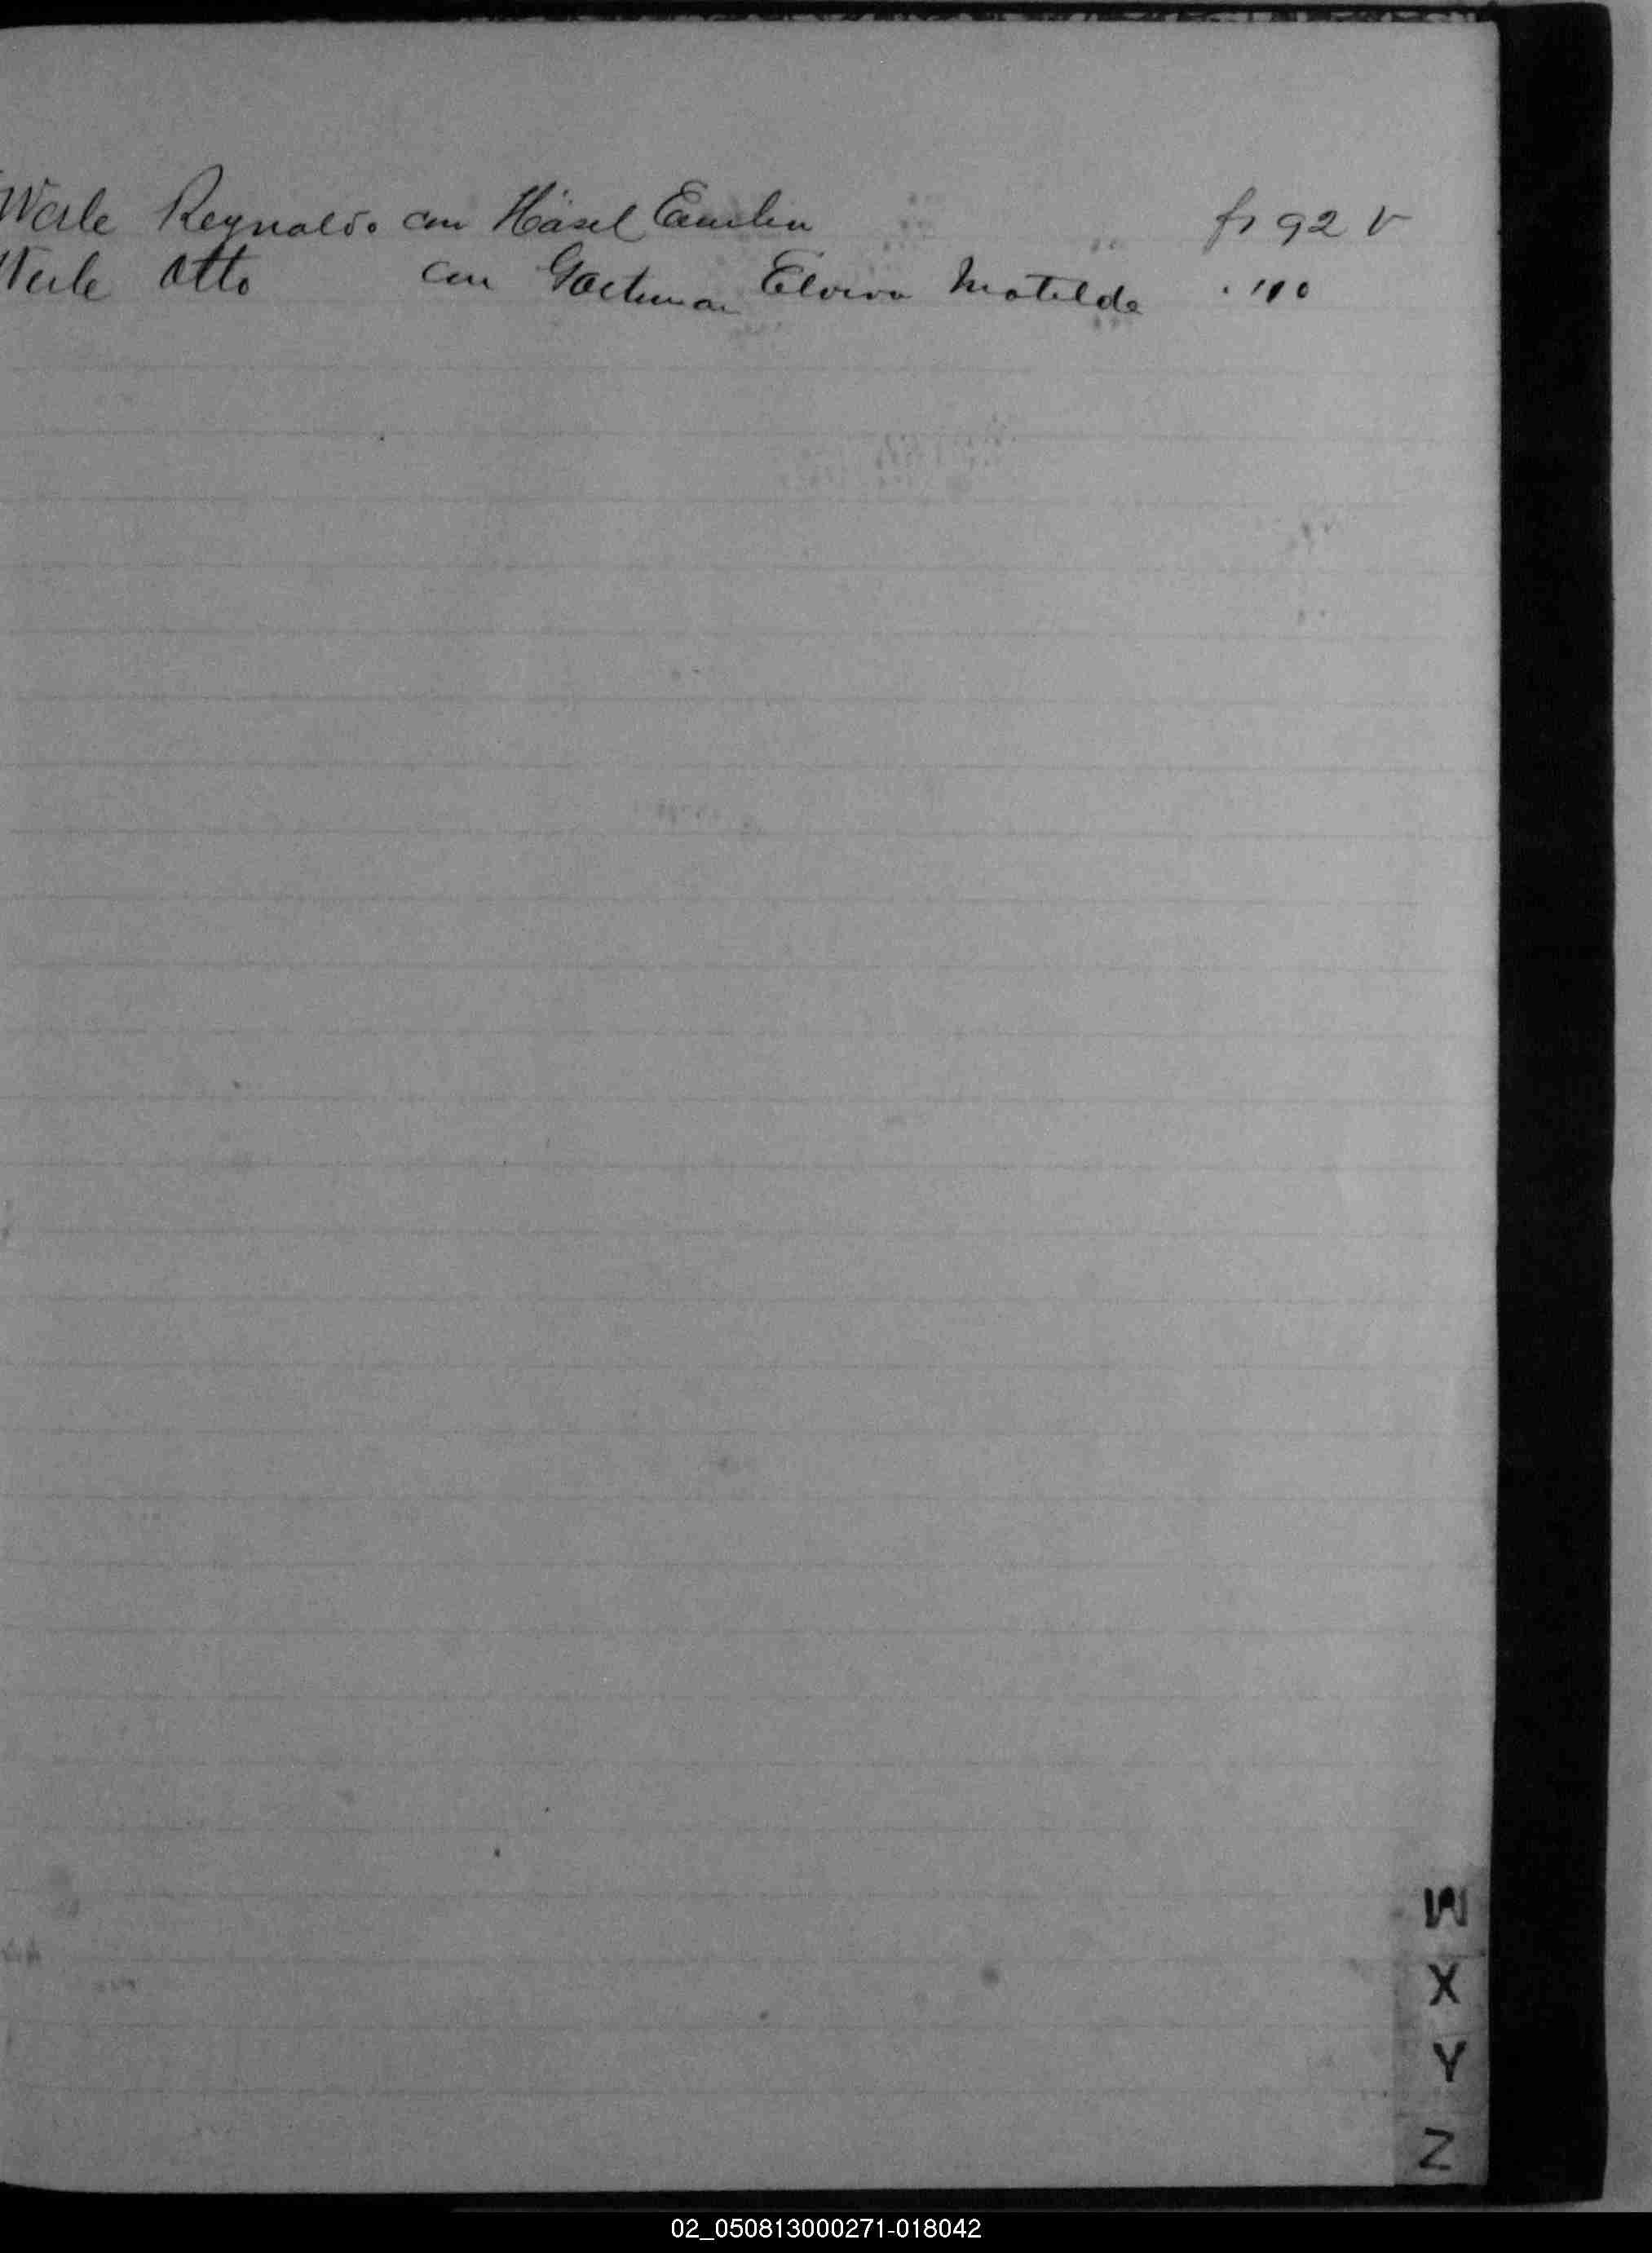 Werle Reynaldo con Häsel Emilia fs 92 v
Werle Otto con Elvira Matilde " 110
W
X
Y
Z
02_050813000271-018042